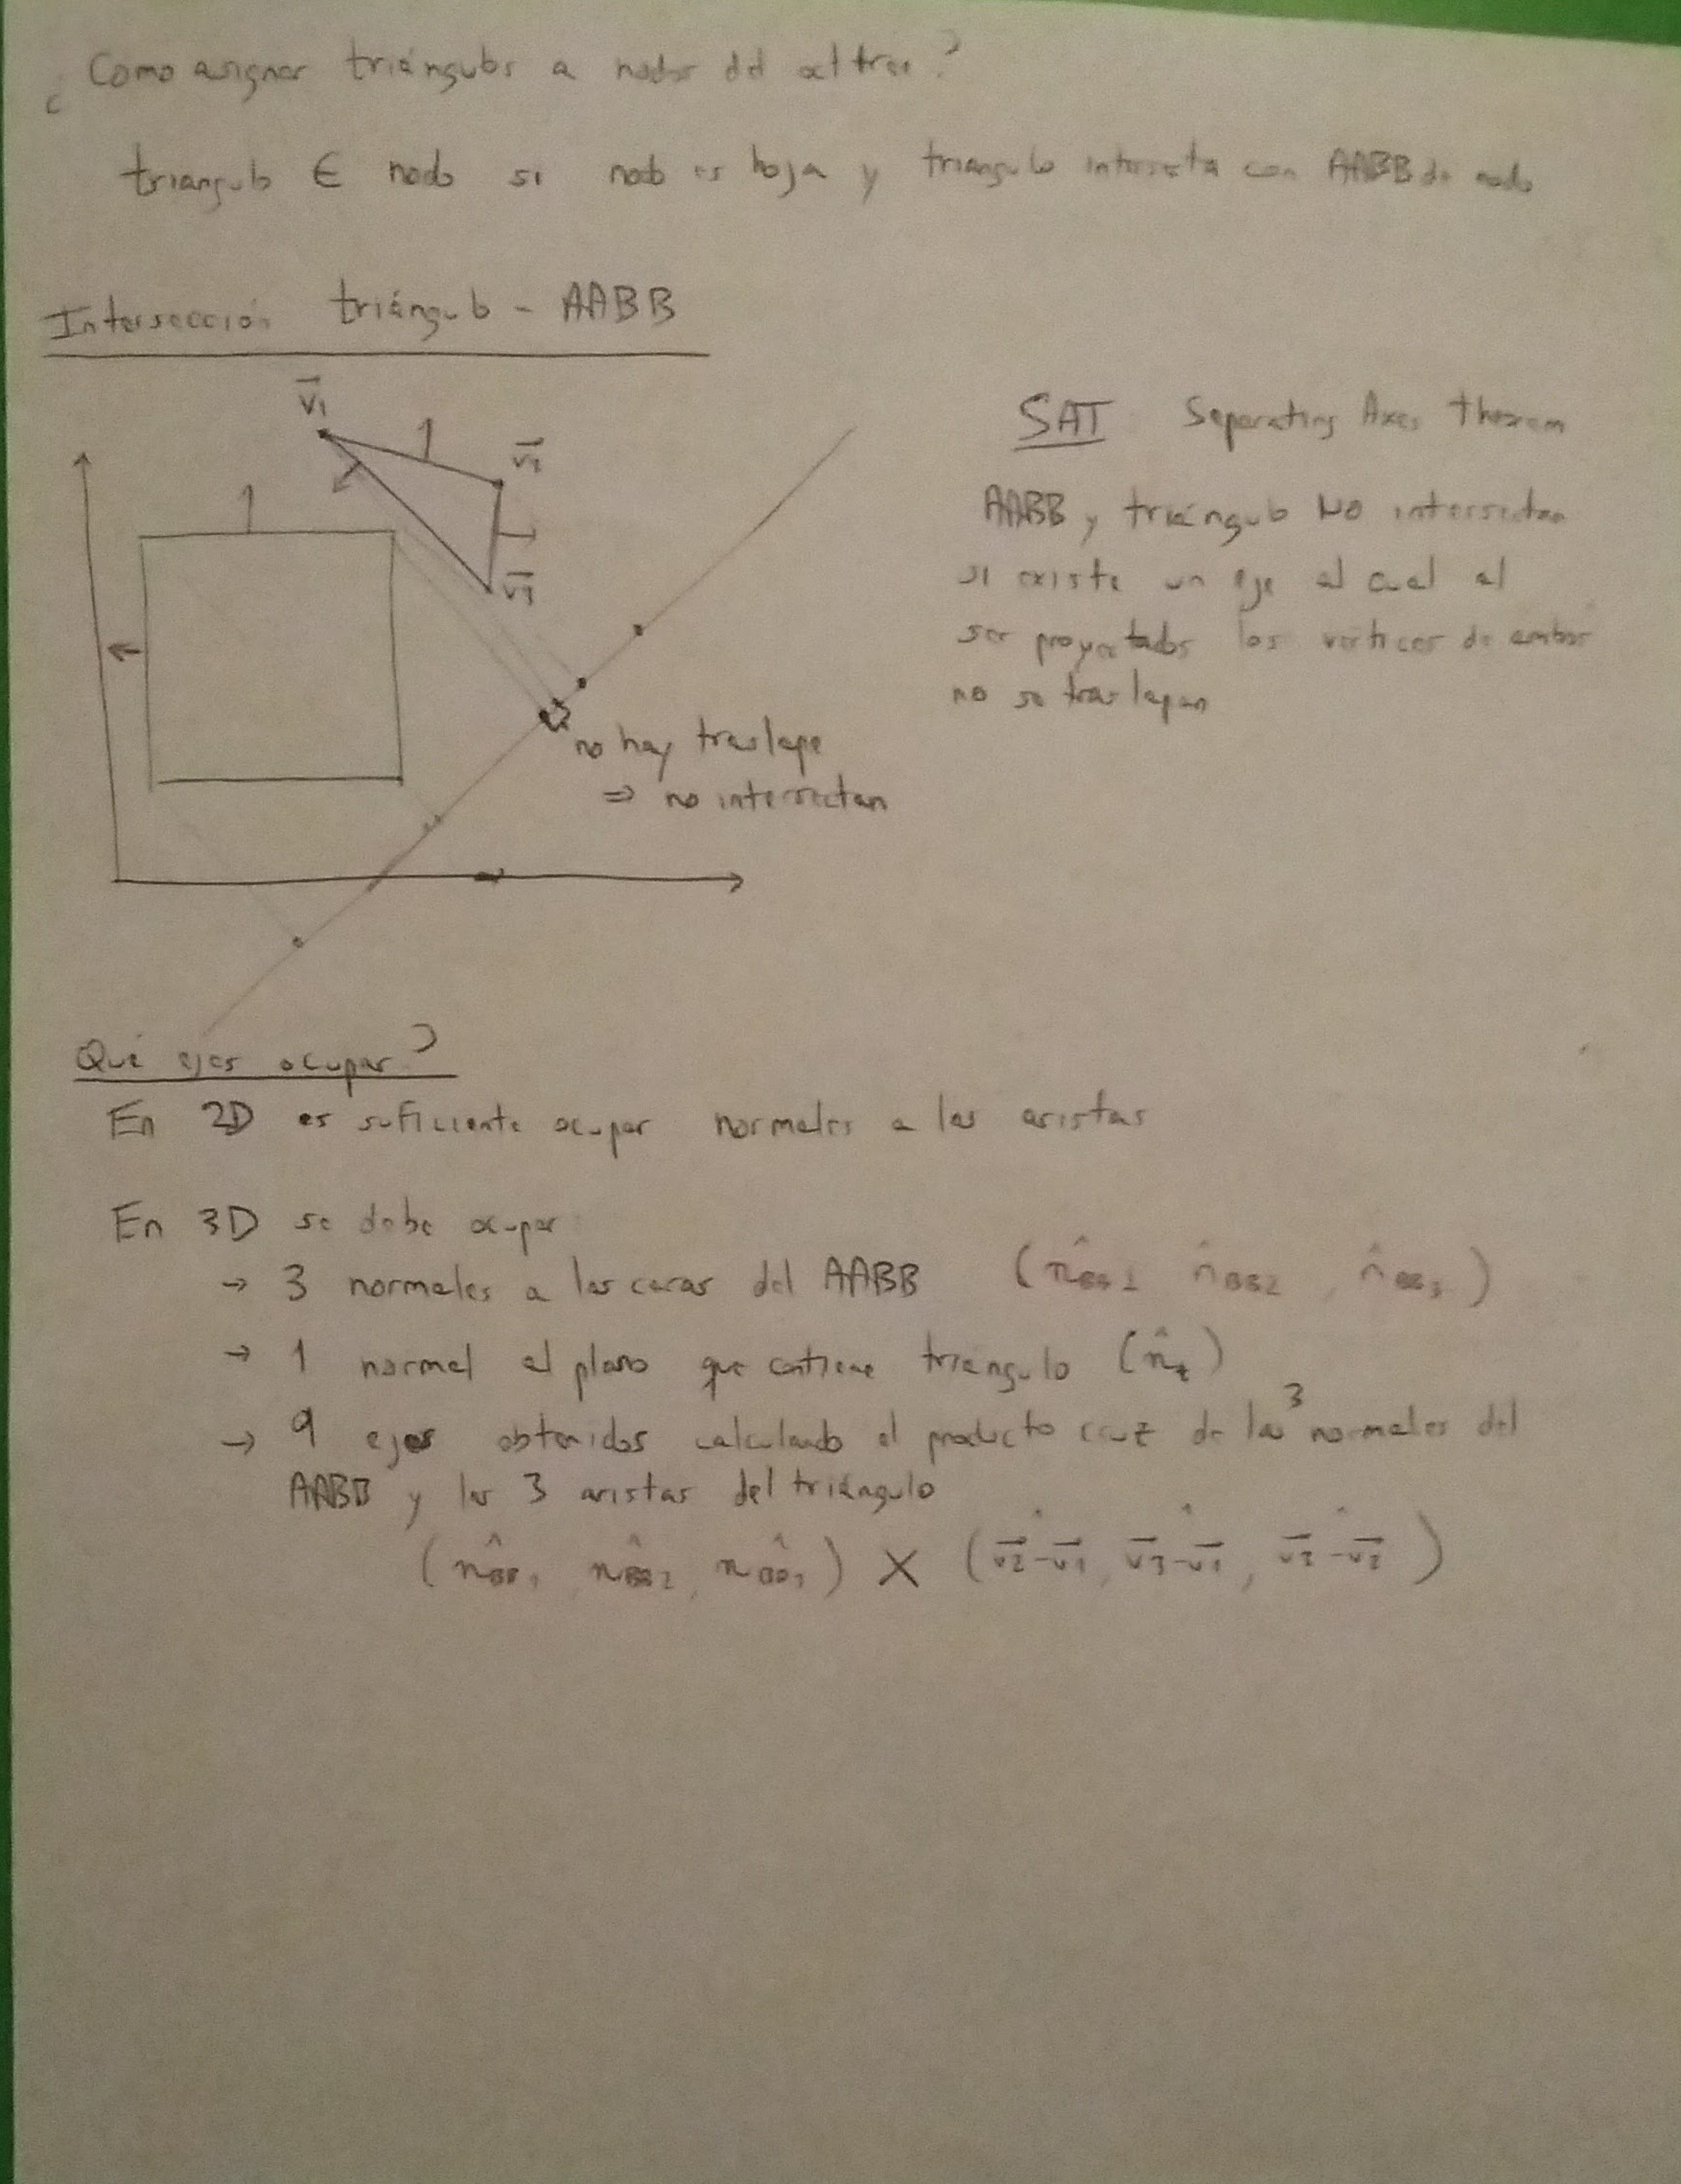 ¿Como asignar triángulos a nodos del octree?
triangulo ∈ nodo si nodo es hoja y triangulo intersecta con AABB de nodo
Intersección triángulo - AABB
v1
v2
v3
no hay traslape
⇒ no intersectan
SAT Separating Axes Theorem
AABB y triángulo NO intersectan
si existe un eje al cual al
ser proyectados los vértices de ambos
no se traslapan
Qué ejes ocupar?
En 2D es suficiente ocupar normales a las aristas
En 3D se debe ocupar:
→ 3 normales a las caras del AABB (n̂BB1 n̂BB2, n̂BB3)
→ 1 normal al plano que contiene triángulo (n̂t)
→ 9 ejes obtenidos calculando el producto cruz de las 3 normales del
AABB y las 3 aristas del triángulo
(n̂BB1, n̂BB2, n̂BB3) X (v2-v1, v3-v1, v3-v2)